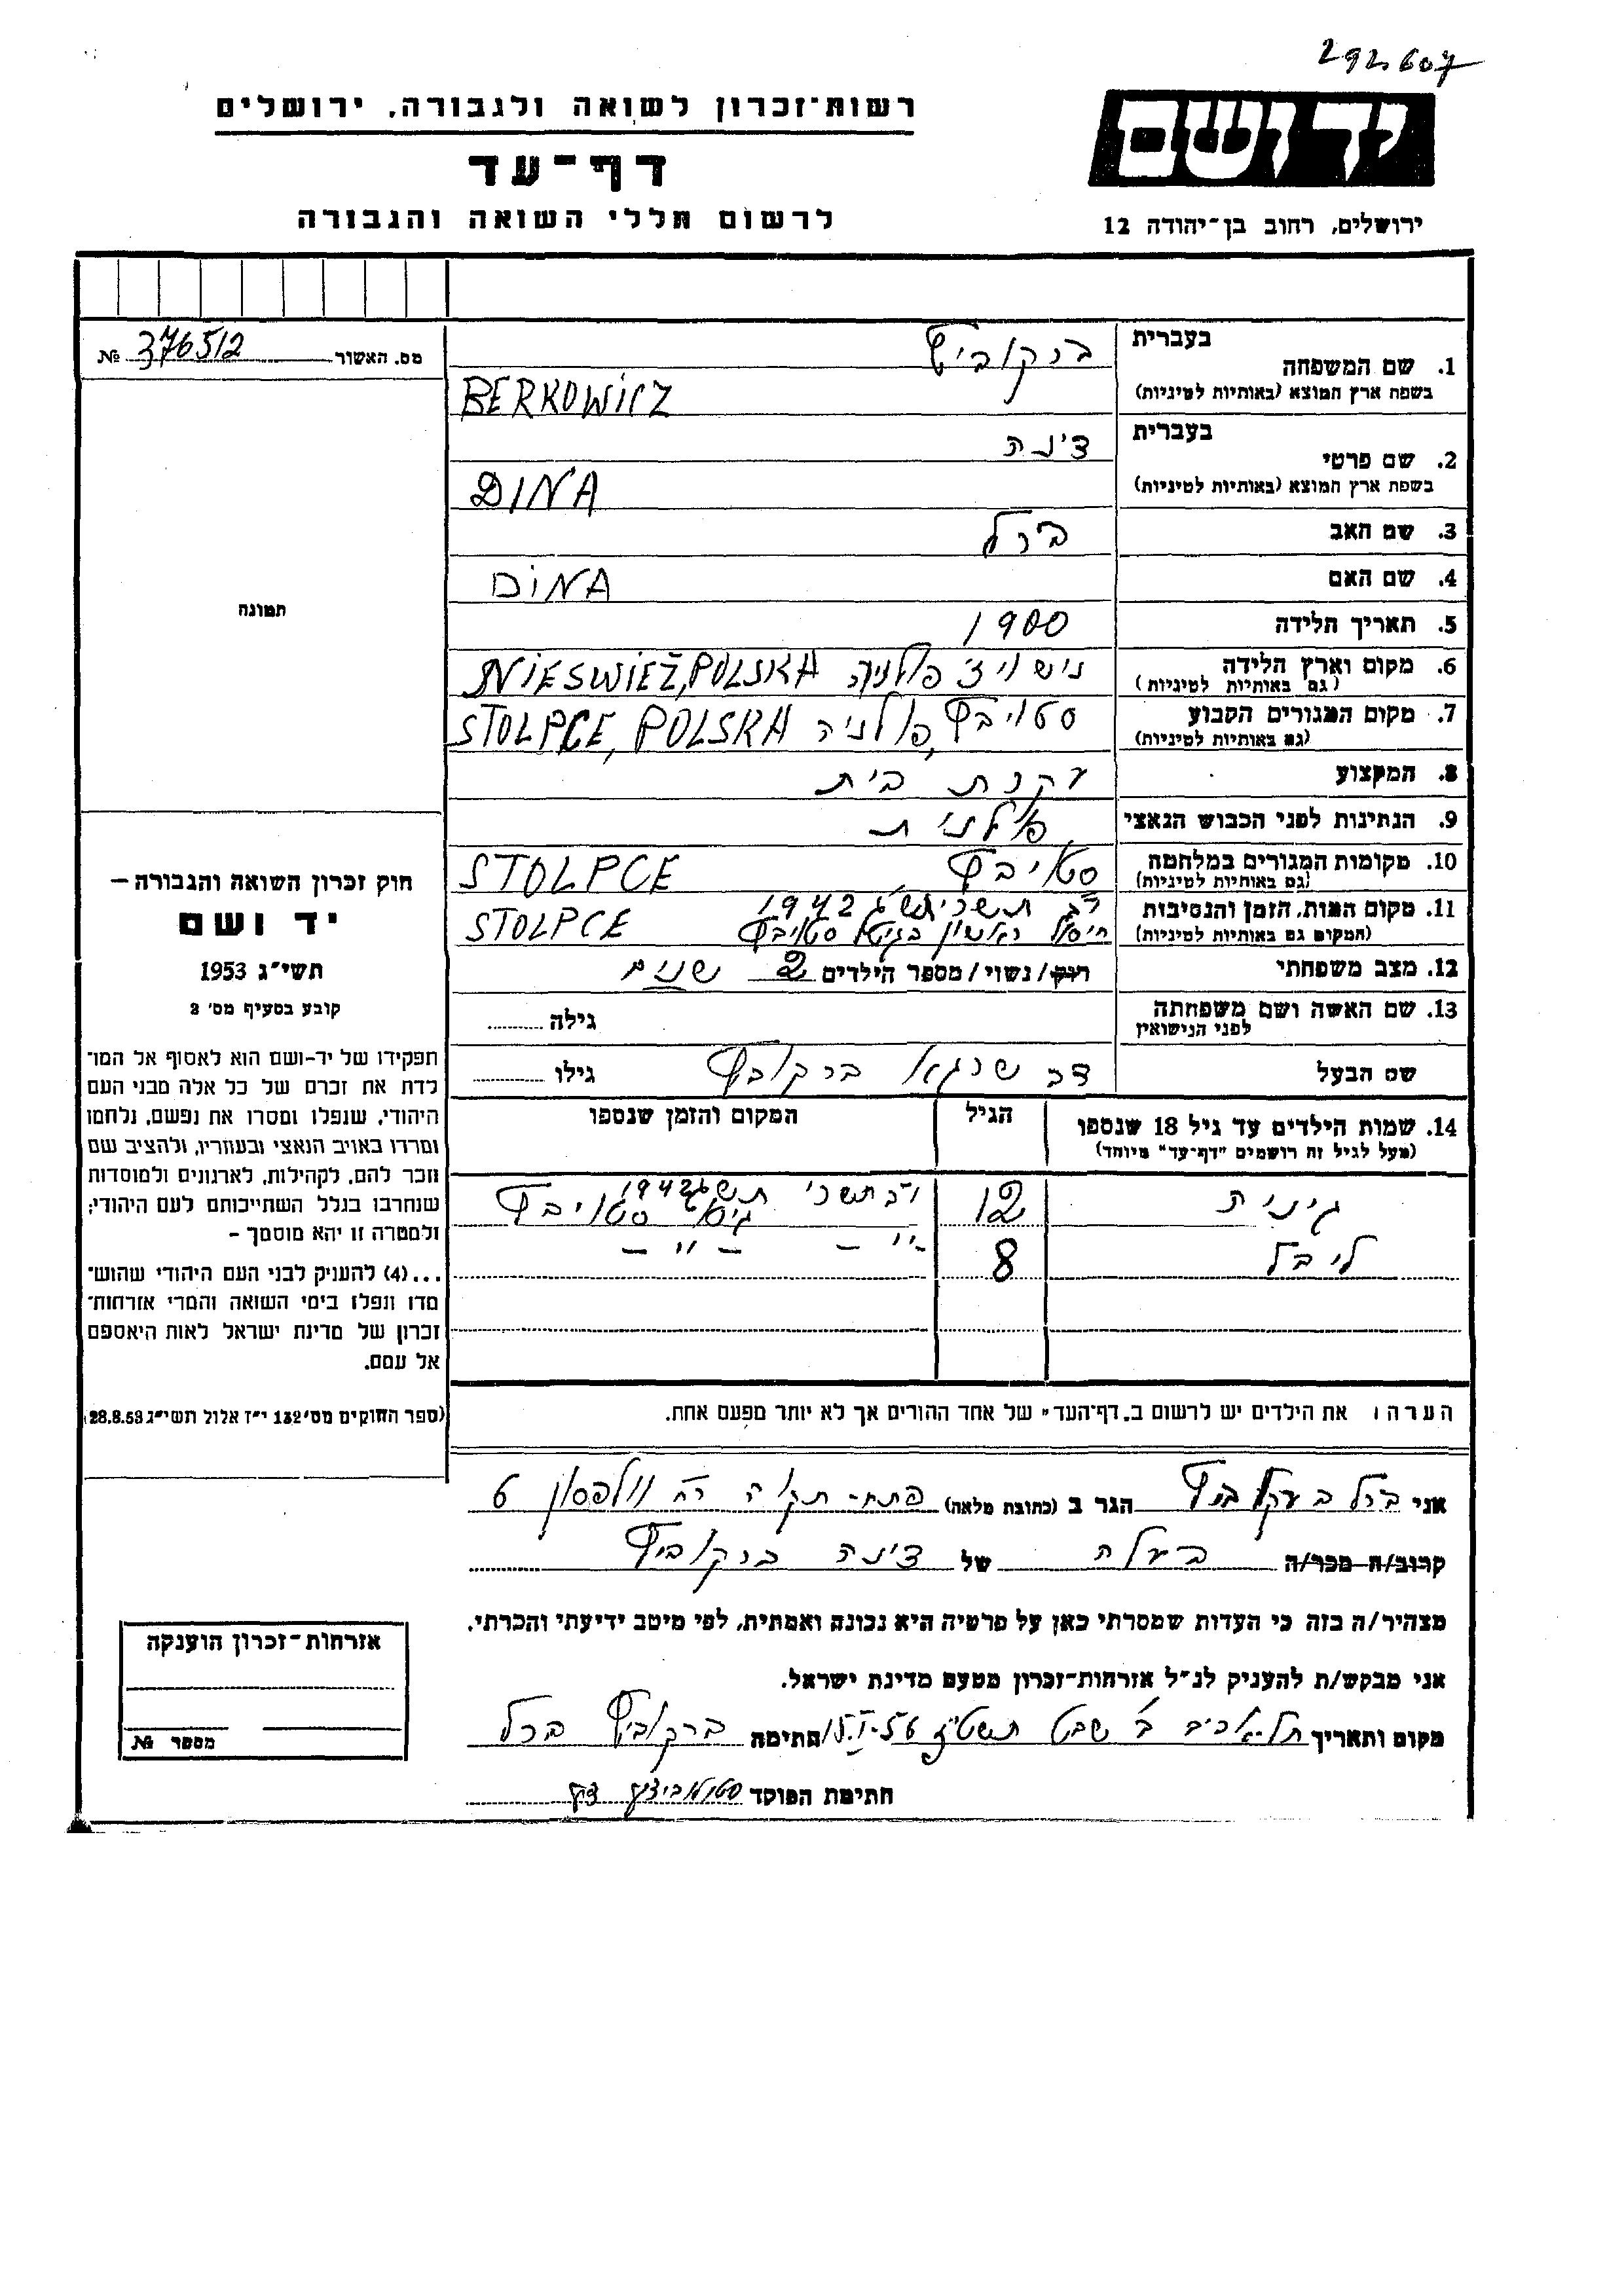 292607
רשות־זכרון לשואה ולגבורה, ירושלים
יד ושם
דף־עד
לרשום חללי השואה והגבורה
ירושלים, רחוב בן־יהודה 12
מס. האשור 376512 №
תמונה
חוק זכרון השואה והגבורה —
יד ושם
תשי״ג 1953
קובע בסעיף מס׳ 2
תפקידו של יד־ושם הוא לאסוף אל המו־
לדת את זכרם של כל אלה מבני העם
היהודי, שנפלו ומסרו את נפשם, נלחמו
ומרדו באויב הנאצי ובעוזריו, ולהציב שם
וזכר להם, לקהילות, לארגונים ולמוסדות
שנחרבו בגלל השתייכותם לעם היהודי;
ולמטרה זו יהא מוסמך —
...(4) להעניק לבני העם היהודי שהוש־
מדו ונפלו בימי השואה והמרי אזרחות־
זכרון של מדינת ישראל לאות היאספם
אל עמם.
(ספר החוקים מס׳ 132 י״ז אלול תשי״ג 28.8.53)
בעברית ברקוביץ
1. שם המשפחה
בשפת ארץ המוצא (באותיות לטיניות) BERKOWICZ
בעברית דינה
2. שם פרטי
בשפת ארץ המוצא (באותיות לטיניות) DINA
3. שם האב ברל
4. שם האם DINA
5. תאריך הלידה 1900
6. מקום וארץ הלידה נישויז׳ פולניה NIESWIEŻ, POLSKA
(גם באותיות לטיניות)
7. מקום המגורים הקבוע סטויבץ, פולניה STOLPCE, POLSKA
(גם באותיות לטיניות)
8. המקצוע עקרת בית
9. הנתינות לפני הכבוש הנאצי פולנית
10. מקומות המגורים במלחמה סטויבץ STOLPCE
(גם באותיות לטיניות)
11. מקום המות, הזמן והנסיבות תשרי תש״ג 1942
(המקום גם באותיות לטיניות) חיסול ראשון בגיטו סטויבץ STOLPCE
12. מצב משפחתי רוק/נשוי/מספר הילדים 2 שנים
13. שם האשה ושם משפחתה
לפני הנישואין גילה
שם הבעל דב שרגא ברקוביץ גילו
14. שמות הילדים עד גיל 18 שנספו הגיל המקום והזמן שנספו
(מעל לגיל זה רושמים "דף־עד" מיוחד)
12 תשרי תש״ג 1942
גיטו סטויבץ
ליבל 8 —״— —״—
הערה: את הילדים יש לרשום ב„דף־העד״ של אחד ההורים אך לא יותר מפעם אחת.
אני ברל ברקוביץ הגר ב (כתובת מלאה) פתח־תקוה רח׳ וולפסון 6
קרוב/ה מכר/ה בעלה של דינה ברקוביץ
מצהיר/ה בזה כי העדות שמסרתי כאן על פרטיה היא נכונה ואמתית, לפי מיטב ידיעתי והכרתי.
אני מבקש/ת להעניק לנ״ל אזרחות־זכרון מטעם מדינת ישראל.
מקום ותאריך תל־אביב ב׳ שבט תשט״ז 15.I.56 חתימה ברקוביץ ברל
חתימת הפוקד
אזרחות־זכרון הוענקה
מספר №